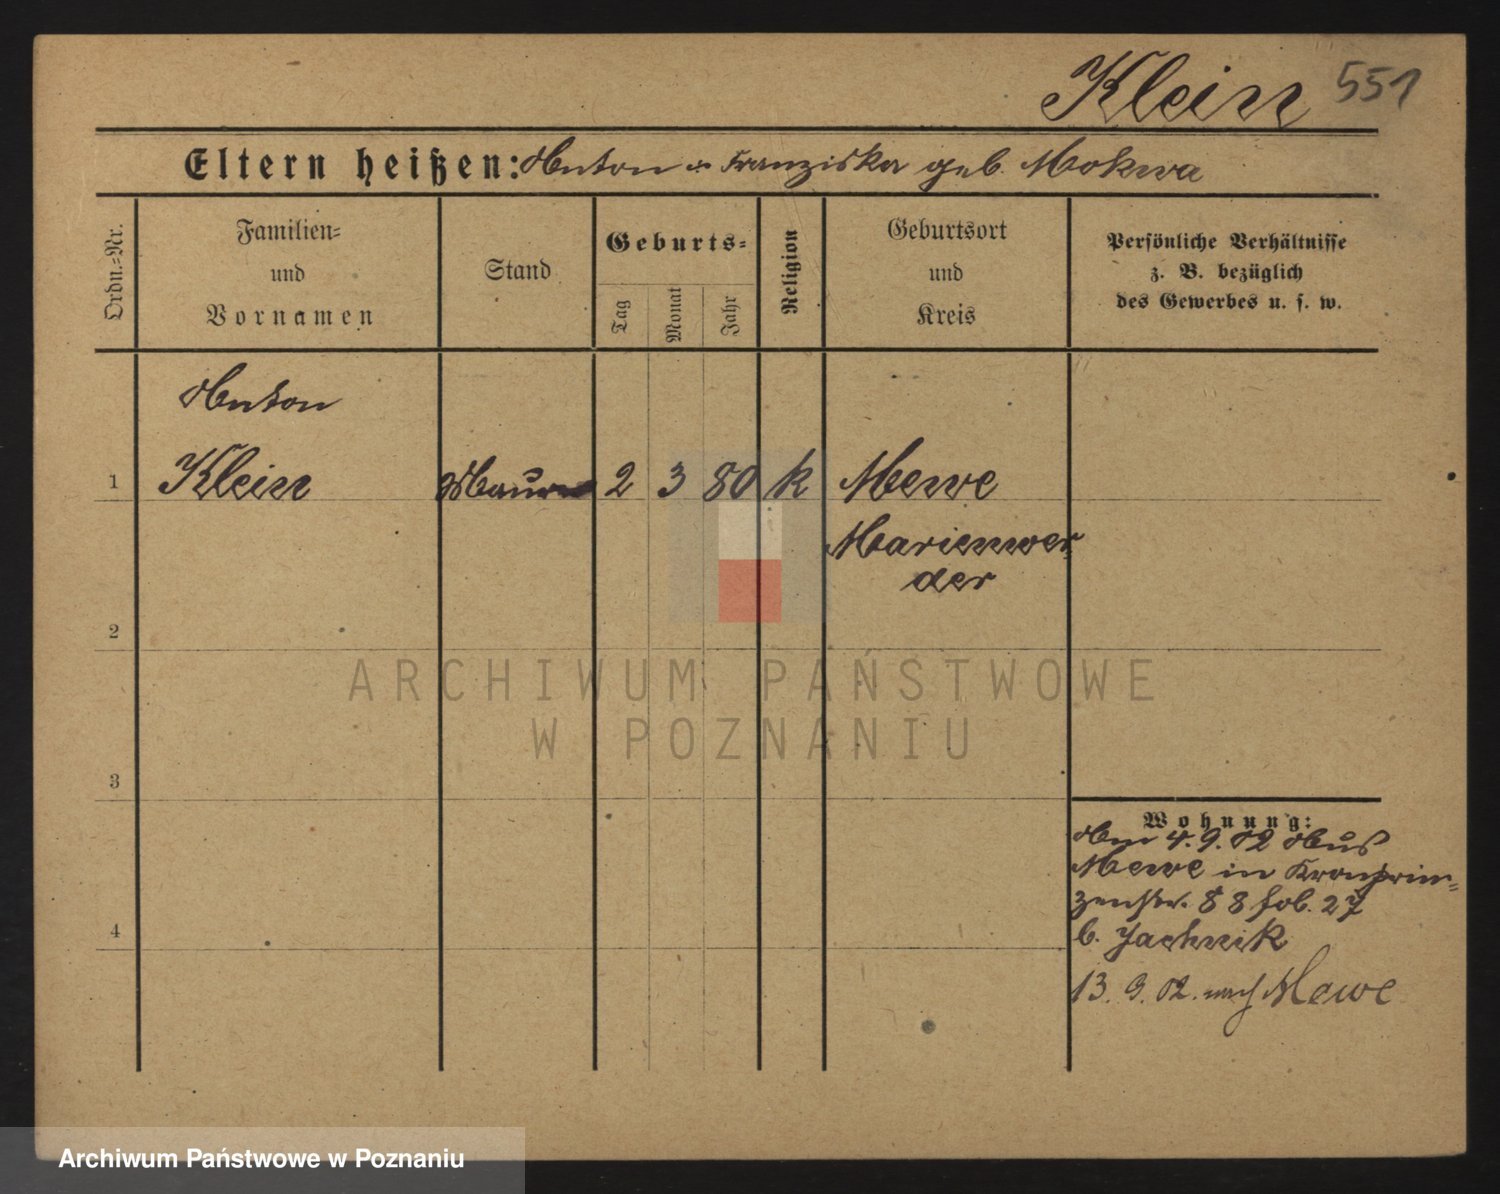 Klein 551
Eltern heißen: Anton u. Franziska geb. Mokwa
Ordn.=Nr.
Familien=
und
Vornamen
Stand
Geburts=
Tag
Monat
Jahr
Religion
Geburtsort
und
Kreis
Persönliche Verhältnisse
z. B. bezüglich
des Gewerbes u. s. w.
Anton
1 Klein Maurer 2 3 80 k Mewe
Marienwer
der
2
ARCHIWUM PAŃSTWOWE
W POZNANIU
3
Wohnung:
Am 4.9.02 aus
Mewe in Kronprin=
zenstr. 88 fol. 27
b. Jachnik
13. 9. 02. nach Mewe
4
Archiwum Państwowe w Poznaniu